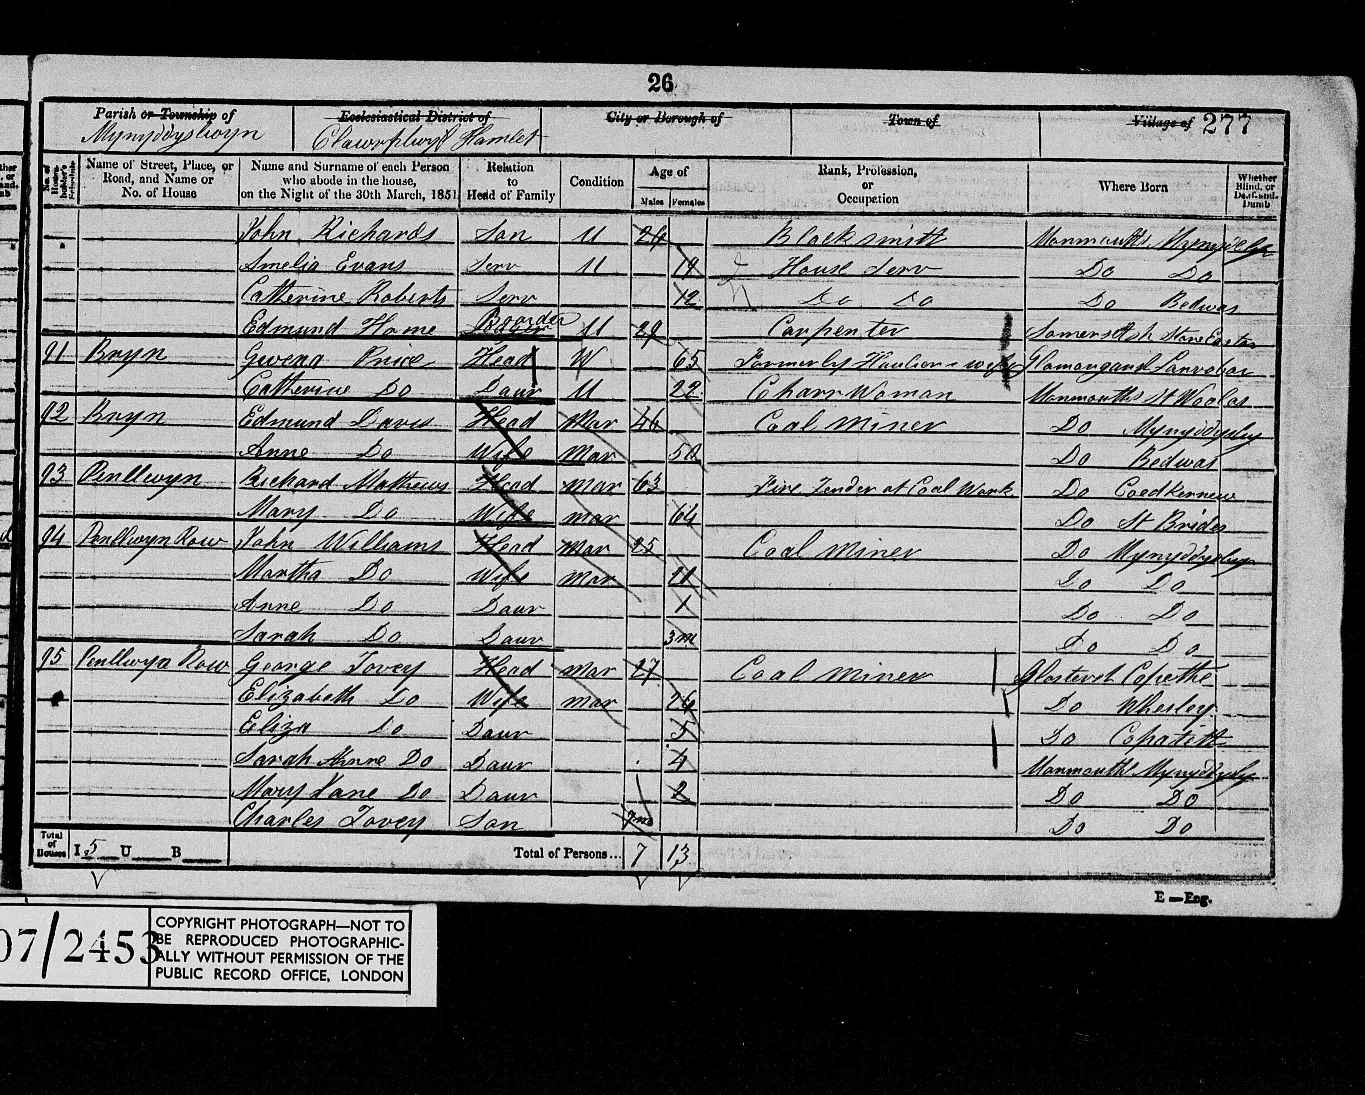 26
Parish or Township of
Ecclesiastical District of
City or Borough of
Town of
Village of 277
Mynyddyslwyn
Clawrplwyf Hamlet
Name of Street, Place, or Road, and Name or No. of House
Name and Surname of each Person who abode in the house, on the Night of the 30th March, 1851
Relation to Head of Family
Condition
Age of
Males Females
Rank, Profession, or Occupation
Where Born
Whether Blind, or Deaf-and-Dumb
John Richards Son U 24 Blacksmith Monmouths
Amelia Evans Serv U 19 House Serv Do Do
Catherine Roberts Serv 12 Do Do Do Bedwas
Edmund Horne Boarder U 29 Carpenter
91 Bryn Gwenn Price Head W 65 Formerly Haulier's wife
Catherine Do Daur U 22 Charr Woman Monmouths St Woolos
92 Bryn Edmund Davis Head Mar 46 Coal Miner Do
Anne Do Wife Mar 50 Do Bedwas
93 Penllwyn Richard Mathews Head Mar 63 Fire Tender at Coal Work Do Coedkernew
Mary Do Wife Mar 64 Do St Brides
94 Penllwyn Row John Williams Head Mar 25 Coal Miner Do
Martha Do Wife Mar 21 Do Do
Anne Do Daur 1 Do Do
Sarah Do Daur 3m Do Do
95 Penllwyn Row George Tovey Head Mar 27 Coal Miner
Elizabeth Do Wife Mar 26 Do
Eliza Do Daur 5 Do
Sarah Anne Do Daur 4 Monmouths
Mary Jane Do Daur 2 Do Do
Charles Tovey Son 7m Do Do
Total of Houses I 5 U B Total of Persons... 7 13
E—Eng.
07/2453
COPYRIGHT PHOTOGRAPH—NOT TO
BE REPRODUCED PHOTOGRAPHIC-
ALLY WITHOUT PERMISSION OF THE
PUBLIC RECORD OFFICE, LONDON